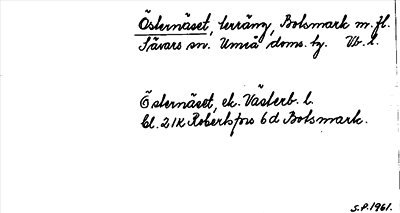 Östernäset, terräng, Botsmark m.fl.
Sävars sn. Umeå doms. tg. Vb. l.
Östernäset, ek. Västerb. l.
Bl. 21K Robertsfors 6d Botsmark.
S.P. 1961.